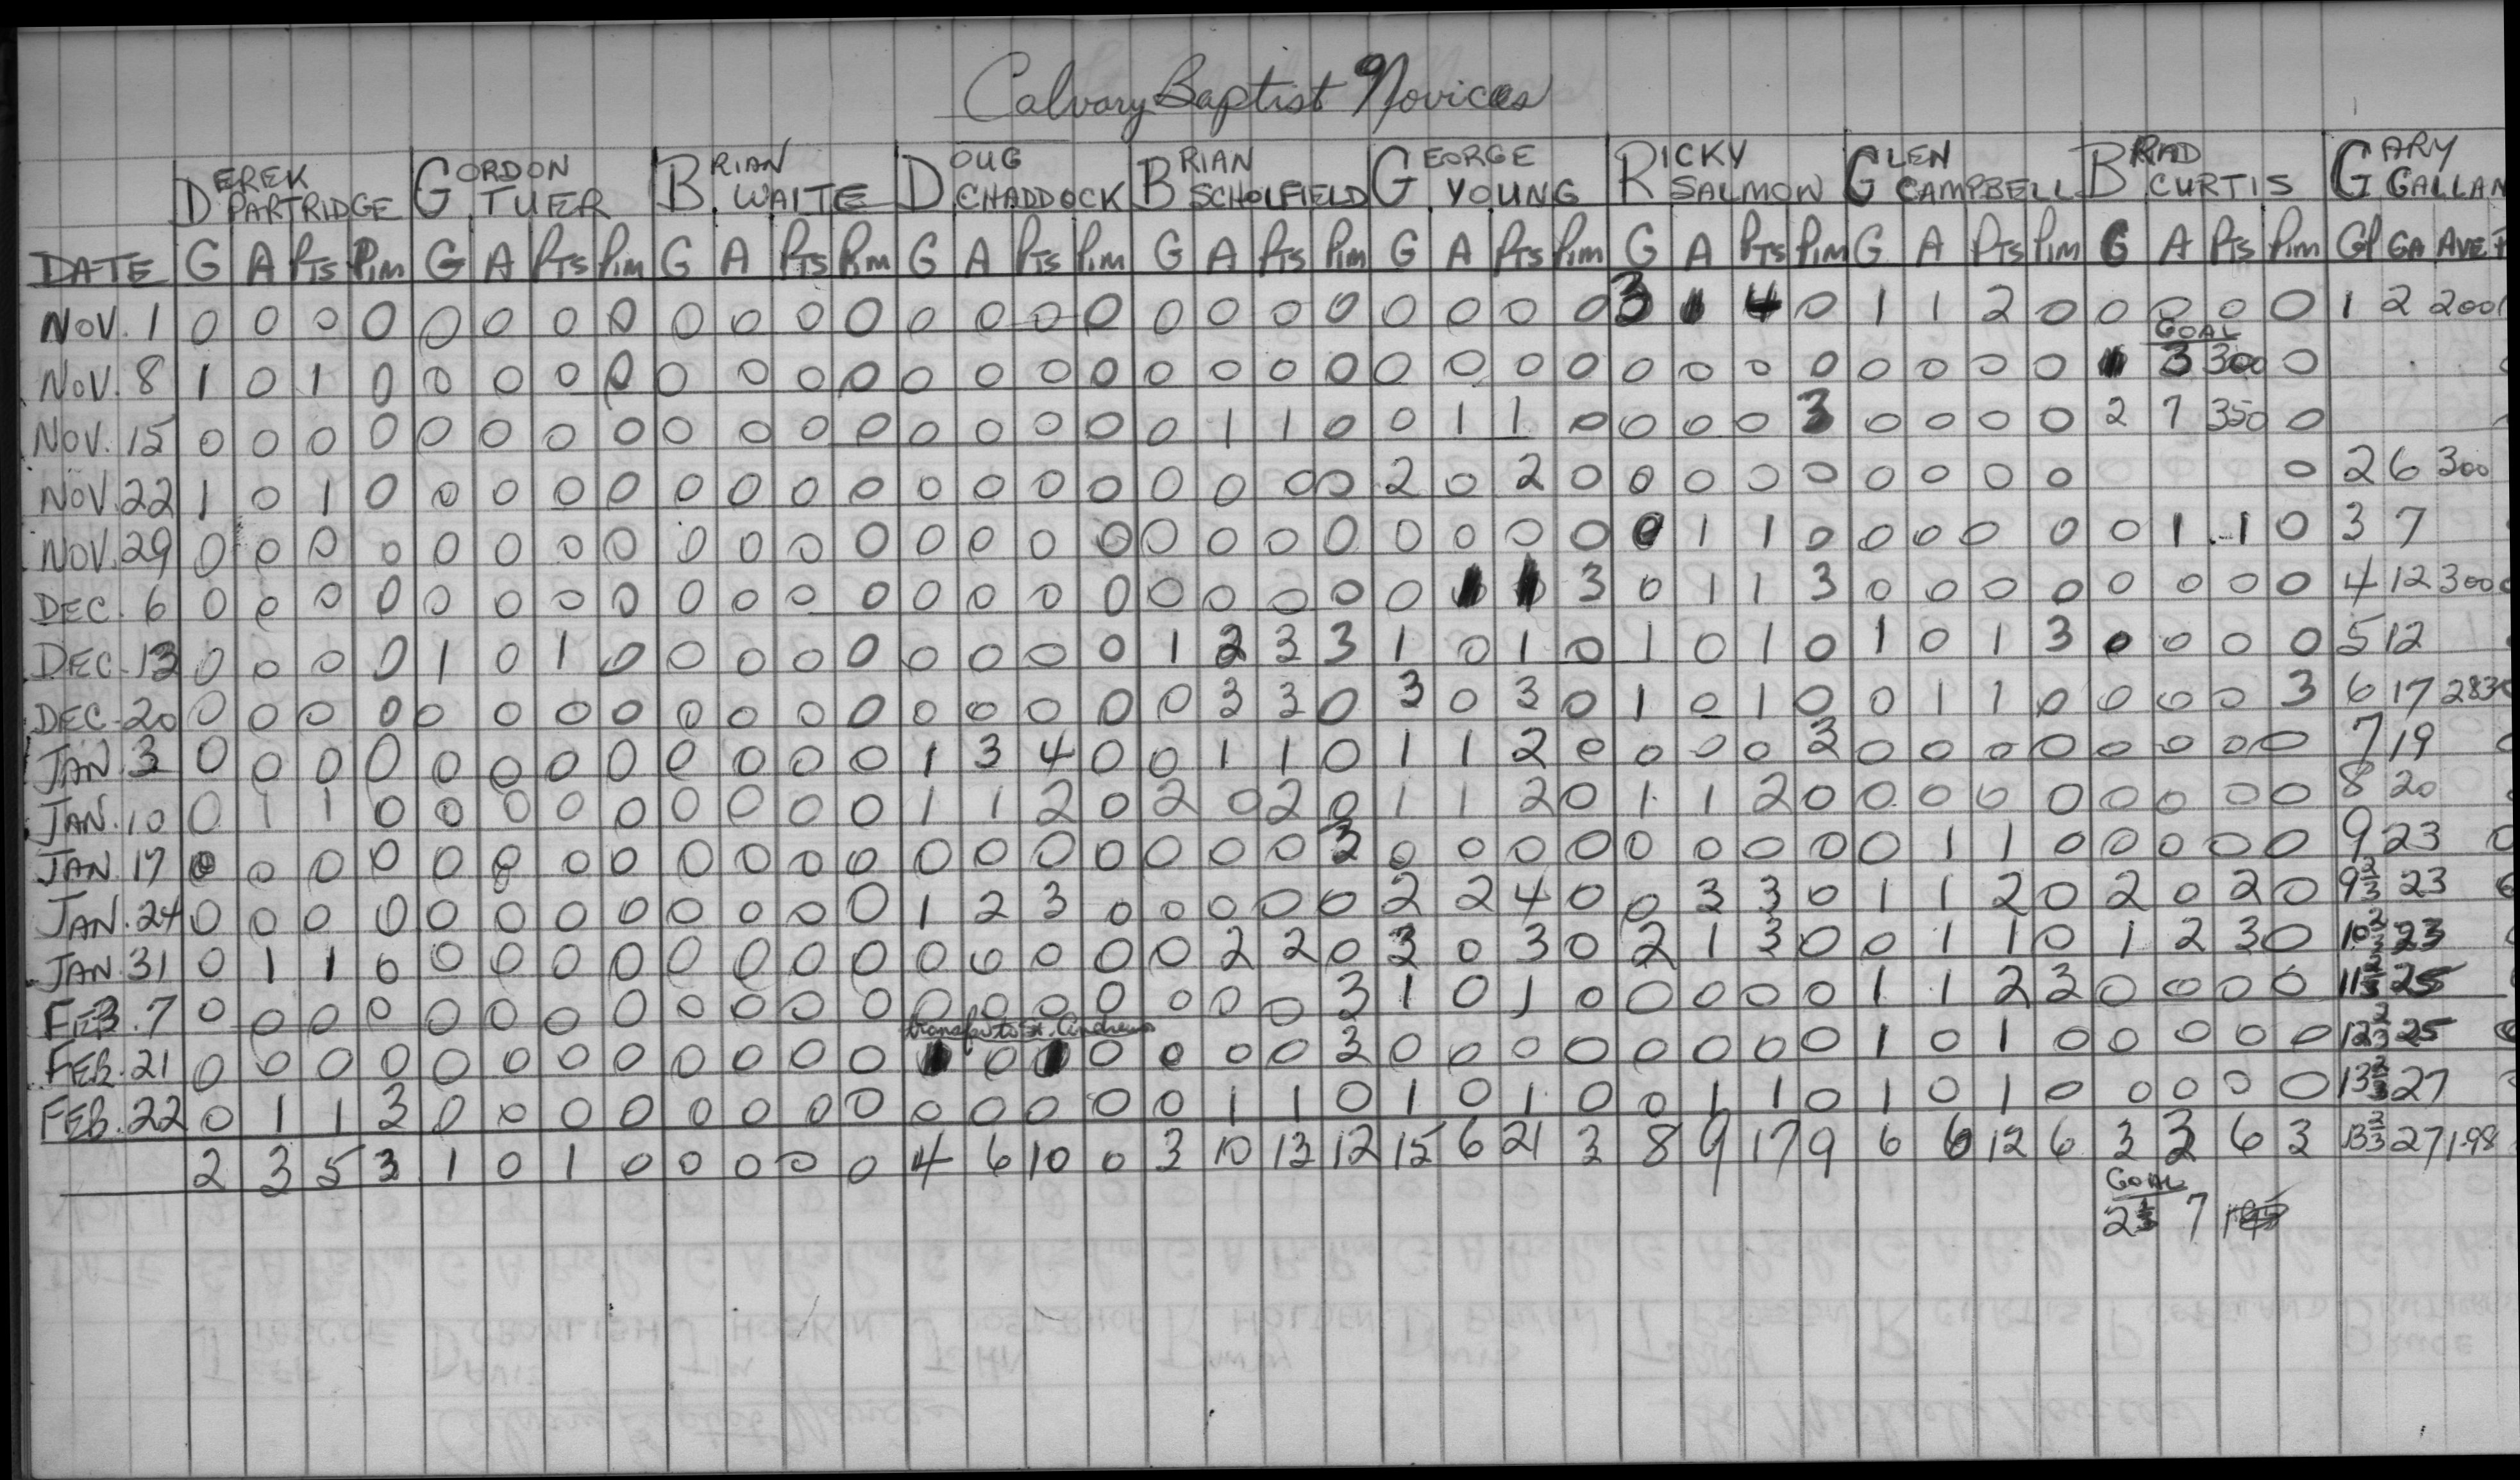 Calvary Baptist Novices
DEREK PARTRIDGE GORDON TUFER BRIAN WAITE DOUG CHADDOCK BRIAN SCHOLFIELD GEORGE YOUNG RICKY SALMON GLEN CAMPBELL BRAD CURTIS GARY GALLAN
DATE G A Pts Pim G A Pts Pim G A Pts Pim G A Pts Pim G A Pts Pim G A Pts Pim G A Pts Pim G A Pts Pim G A Pts Pim GP GA AVE
NOV. 1 0 0 0 0 0 0 0 0 0 0 0 0 0 0 0 0 0 0 0 0 0 0 0 0 3 1 4 0 1 1 2 0 0 0 0 0 1 2 200
GOAL
NOV. 8 1 0 1 0 0 0 0 0 0 0 0 0 0 0 0 0 0 0 0 0 0 0 0 0 0 0 0 0 0 0 0 0 1 3 300 0
NOV. 15 0 0 0 0 0 0 0 0 0 0 0 0 0 0 0 0 0 1 1 0 0 1 1 0 0 0 0 3 0 0 0 0 2 7 350 0
NOV. 22 1 0 1 0 0 0 0 0 0 0 0 0 0 0 0 0 0 0 0 0 2 0 2 0 0 0 0 0 0 0 0 0 0 2 6 300
NOV. 29 0 0 0 0 0 0 0 0 0 0 0 0 0 0 0 0 0 0 0 0 0 0 0 0 0 1 1 0 0 0 0 0 0 1 1 0 3 7
DEC. 6 0 0 0 0 0 0 0 0 0 0 0 0 0 0 0 0 0 0 0 0 0 3 0 1 1 3 0 0 0 0 0 0 0 0 4 12 300
DEC. 13 0 0 0 0 1 0 1 0 0 0 0 0 0 0 0 0 1 2 3 3 1 0 1 0 1 0 1 0 1 0 1 3 0 0 0 0 5 12
DEC. 20 0 0 0 0 0 0 0 0 0 0 0 0 0 0 0 0 0 3 3 0 3 0 3 0 1 0 1 0 0 1 1 0 0 0 0 3 6 17 283
JAN. 3 0 0 0 0 0 0 0 0 0 0 0 0 1 3 4 0 0 1 1 0 1 1 2 0 0 0 0 3 0 0 0 0 0 0 0 0 7 19
JAN. 10 0 1 1 0 0 0 0 0 0 0 0 0 1 1 2 0 2 0 2 0 1 1 2 0 1 1 2 0 0 0 0 0 0 0 0 0 8 20
JAN. 17 0 0 0 0 0 0 0 0 0 0 0 0 0 0 0 0 0 0 0 3 0 0 0 0 0 0 0 0 0 1 1 0 0 0 0 0 9 23
JAN. 24 0 0 0 0 0 0 0 0 0 0 0 0 1 2 3 0 0 0 0 0 2 2 4 0 0 3 3 0 1 1 2 0 2 0 2 0 9 2/3 23
JAN. 31 0 1 1 0 0 0 0 0 0 0 0 0 0 0 0 0 0 2 2 0 3 0 3 0 2 1 3 0 0 1 1 0 1 2 3 0 10 2/3 23
FEB. 7 0 0 0 0 0 0 0 0 0 0 0 0 0 0 0 0 0 0 0 3 1 0 1 0 0 0 0 0 1 1 2 3 0 0 0 0 11 2/3 25
transfer to St. Andrews
FEB. 21 0 0 0 0 0 0 0 0 0 0 0 0 0 0 0 0 0 3 0 0 0 0 0 0 0 0 1 0 1 0 0 0 0 0 12 2/3 25
FEB. 22 0 1 1 3 0 0 0 0 0 0 0 0 0 0 0 0 0 1 1 0 1 0 1 0 0 1 1 0 1 0 1 0 0 0 0 0 13 2/3 27
2 3 5 3 1 0 1 0 0 0 0 0 4 6 10 0 3 10 13 12 15 6 21 3 8 9 17 9 6 6 12 6 3 3 6 3 13 2/3 27 1.98
GOAL
2 1/3 7